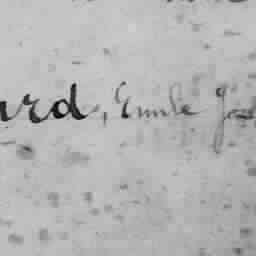 ard, Emile Jos